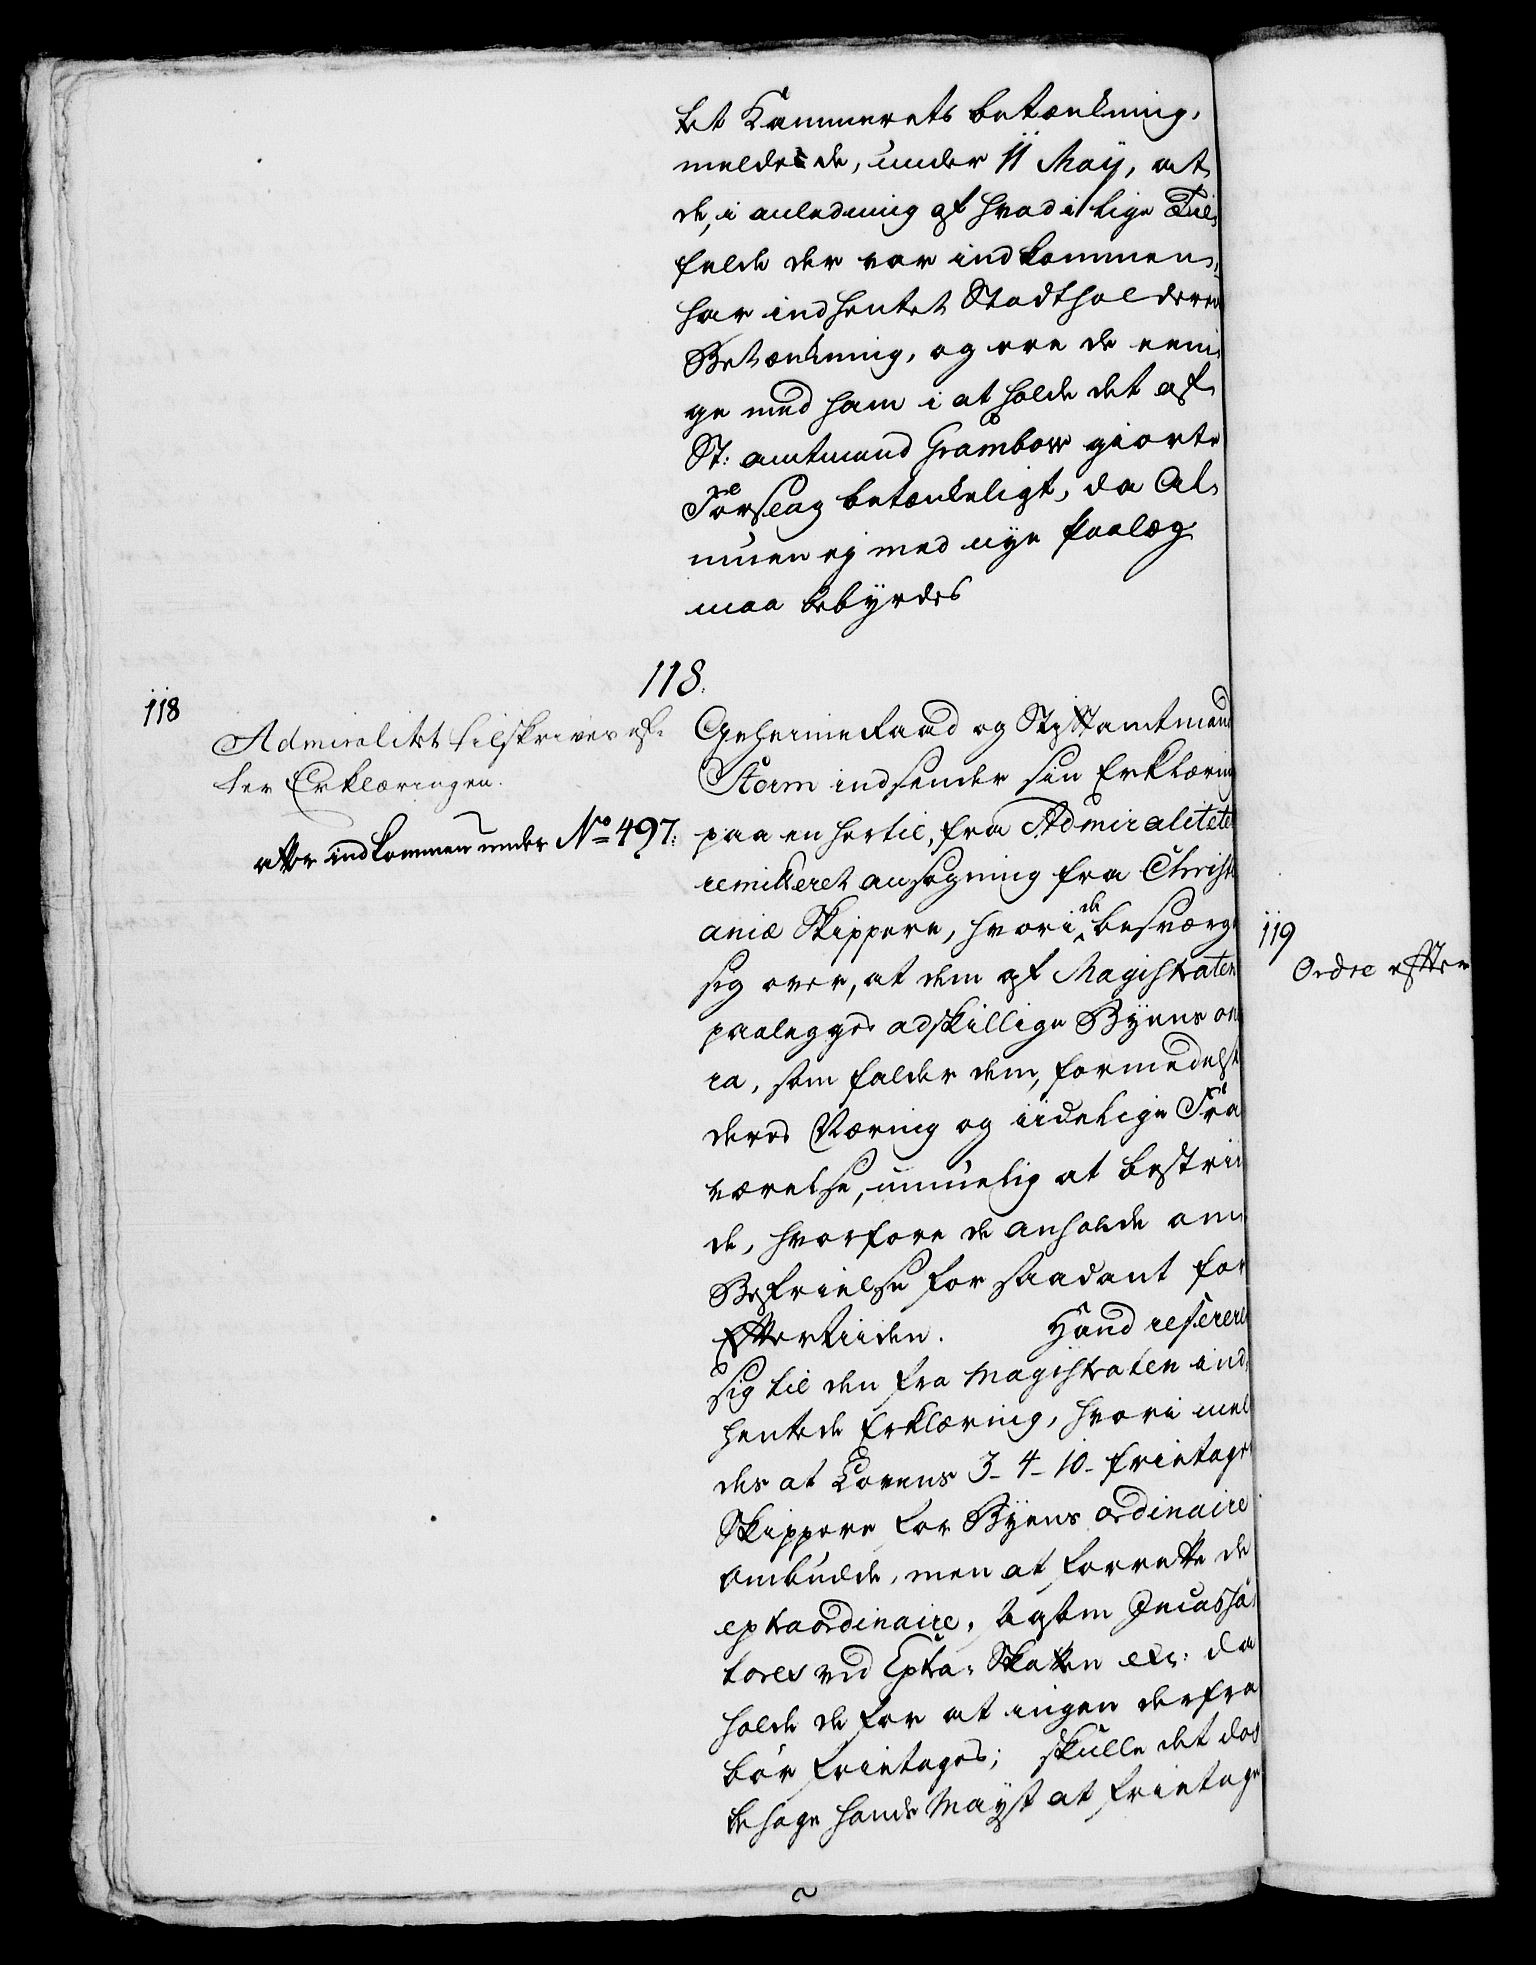 tet Kammerets betænkning,
meldede, under 11 Maÿ, at
de, i anledning af hvad i lige Til,
felde der var indkommen,
har indhentet Stadtholderens
Betænkning, og ere de eeni,
ge med ham i at holde det af
St: amtmand Grambow giorte
Forslag betænkeligt, da Al,
muen ej med nye Paalæg
maa bebyrdes
118.
118
Admiralitet tilskrives ef,
ter Erklæringen.
atter indkommen under No 497:
Geheimeraad og Stiftamtmand
Storm indsender sin Erklæring
paa en hertil, fra Admiralitetet
remitteret ansøgning fra Christi
aniæ Skippere, hvori de besværge
sig over, at dem af Magistraten
paalegges adskillige Byens one
ra, som falder dem, formedelst
deres Næring og iidelige Fra
værelse, umuelig at bestrii
de, hvorfore de anholde om
Befrielse for saadant for
Eftertiiden. Hand referere
sig til den fra Magistraten ind,
hentede Erklæring, hvori mel
des at Lovens 3-4-10- frietager
Skippere for Byens ordinaire
Ombudde, men at forrette de
extraordinaire, saasom Incassa
tores ved Extra-Skatten etc: da
holde de for at ingen derfra
bør frietages; skulle det dog
behage hands Mayst at frietage
119
Ordre efter